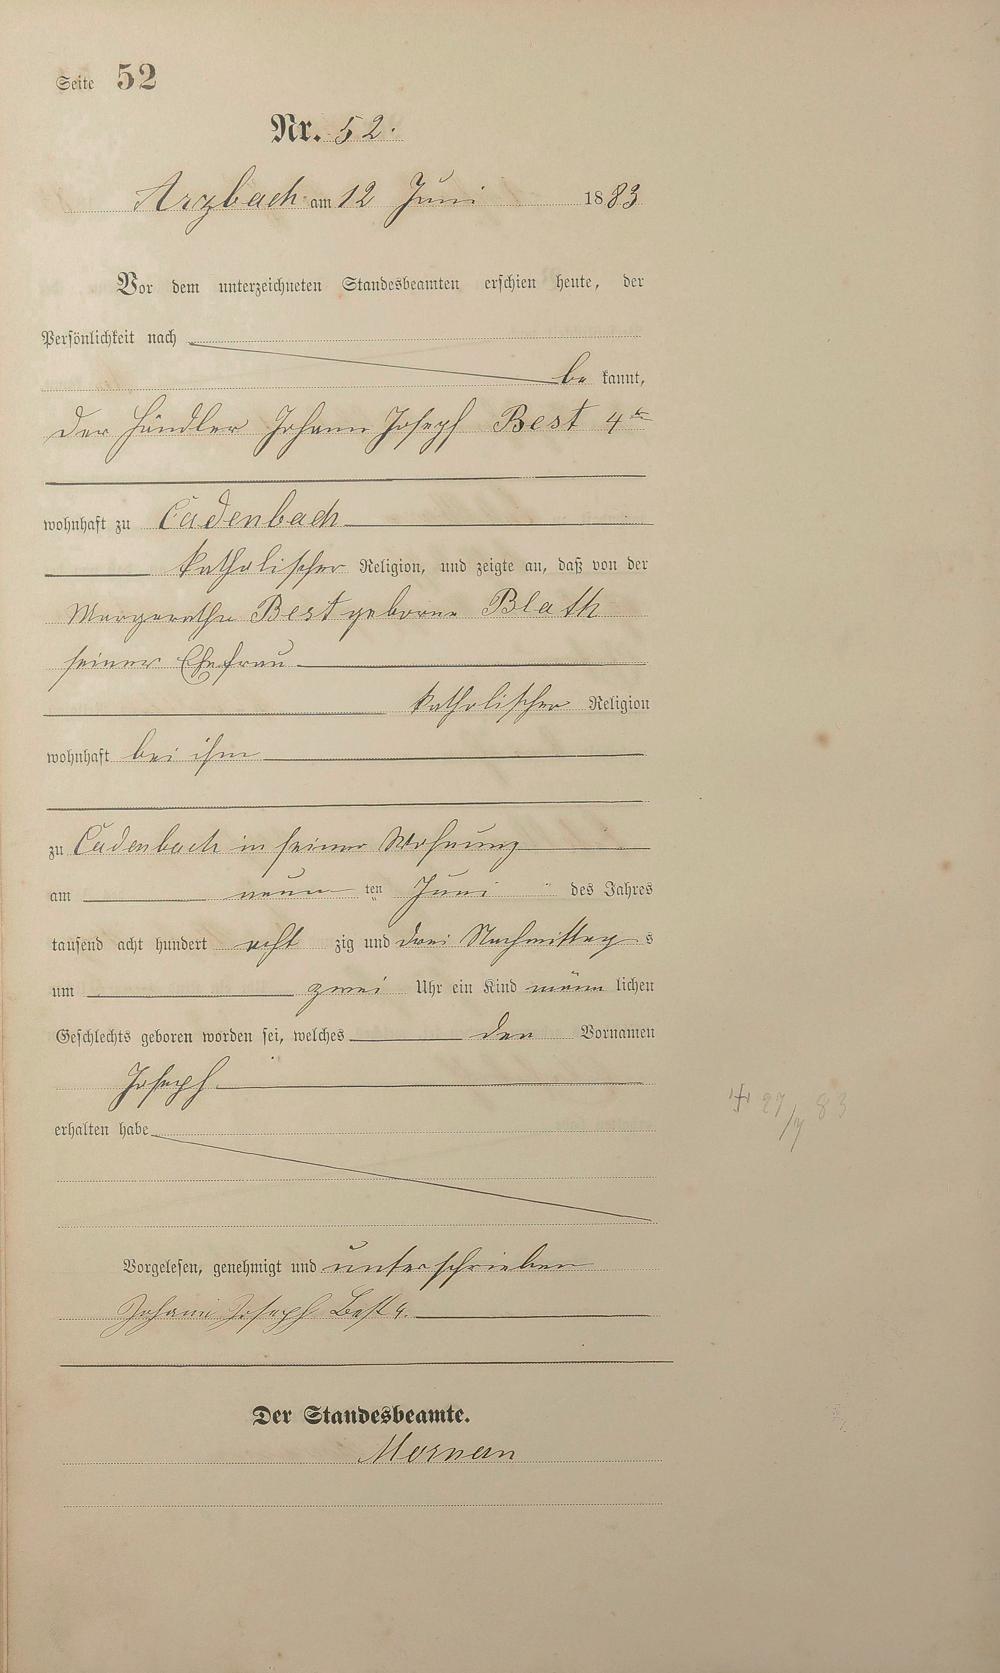 Seite 52
Nr. 52.
Arzbach am 12 Juni 1883
Vor dem unterzeichneten Standesbeamten erschien heute, der
Persönlichkeit nach
be kannt,
der Händler Johann Joseph Best 4te
wohnhaft zu Cadenbach
katholischer Religion, und zeigte an, daß von der
Margaretha Best geborne Blath
seiner Ehefrau
katholischer Religion
wohnhaft bei ihm
zu Cadenbach in seiner Wohnung
am neun ten Juni des Jahres
tausend acht hundert acht zig und drei Nachmittag s
um zwei Uhr ein Kind männ lichen
Geschlechts geboren worden sei, welches den Vornamen
Joseph
erhalten habe
+ 27/7 83
Vorgelesen, genehmigt und unterschrieben
Johann Joseph Best 4.
Der Standesbeamte.